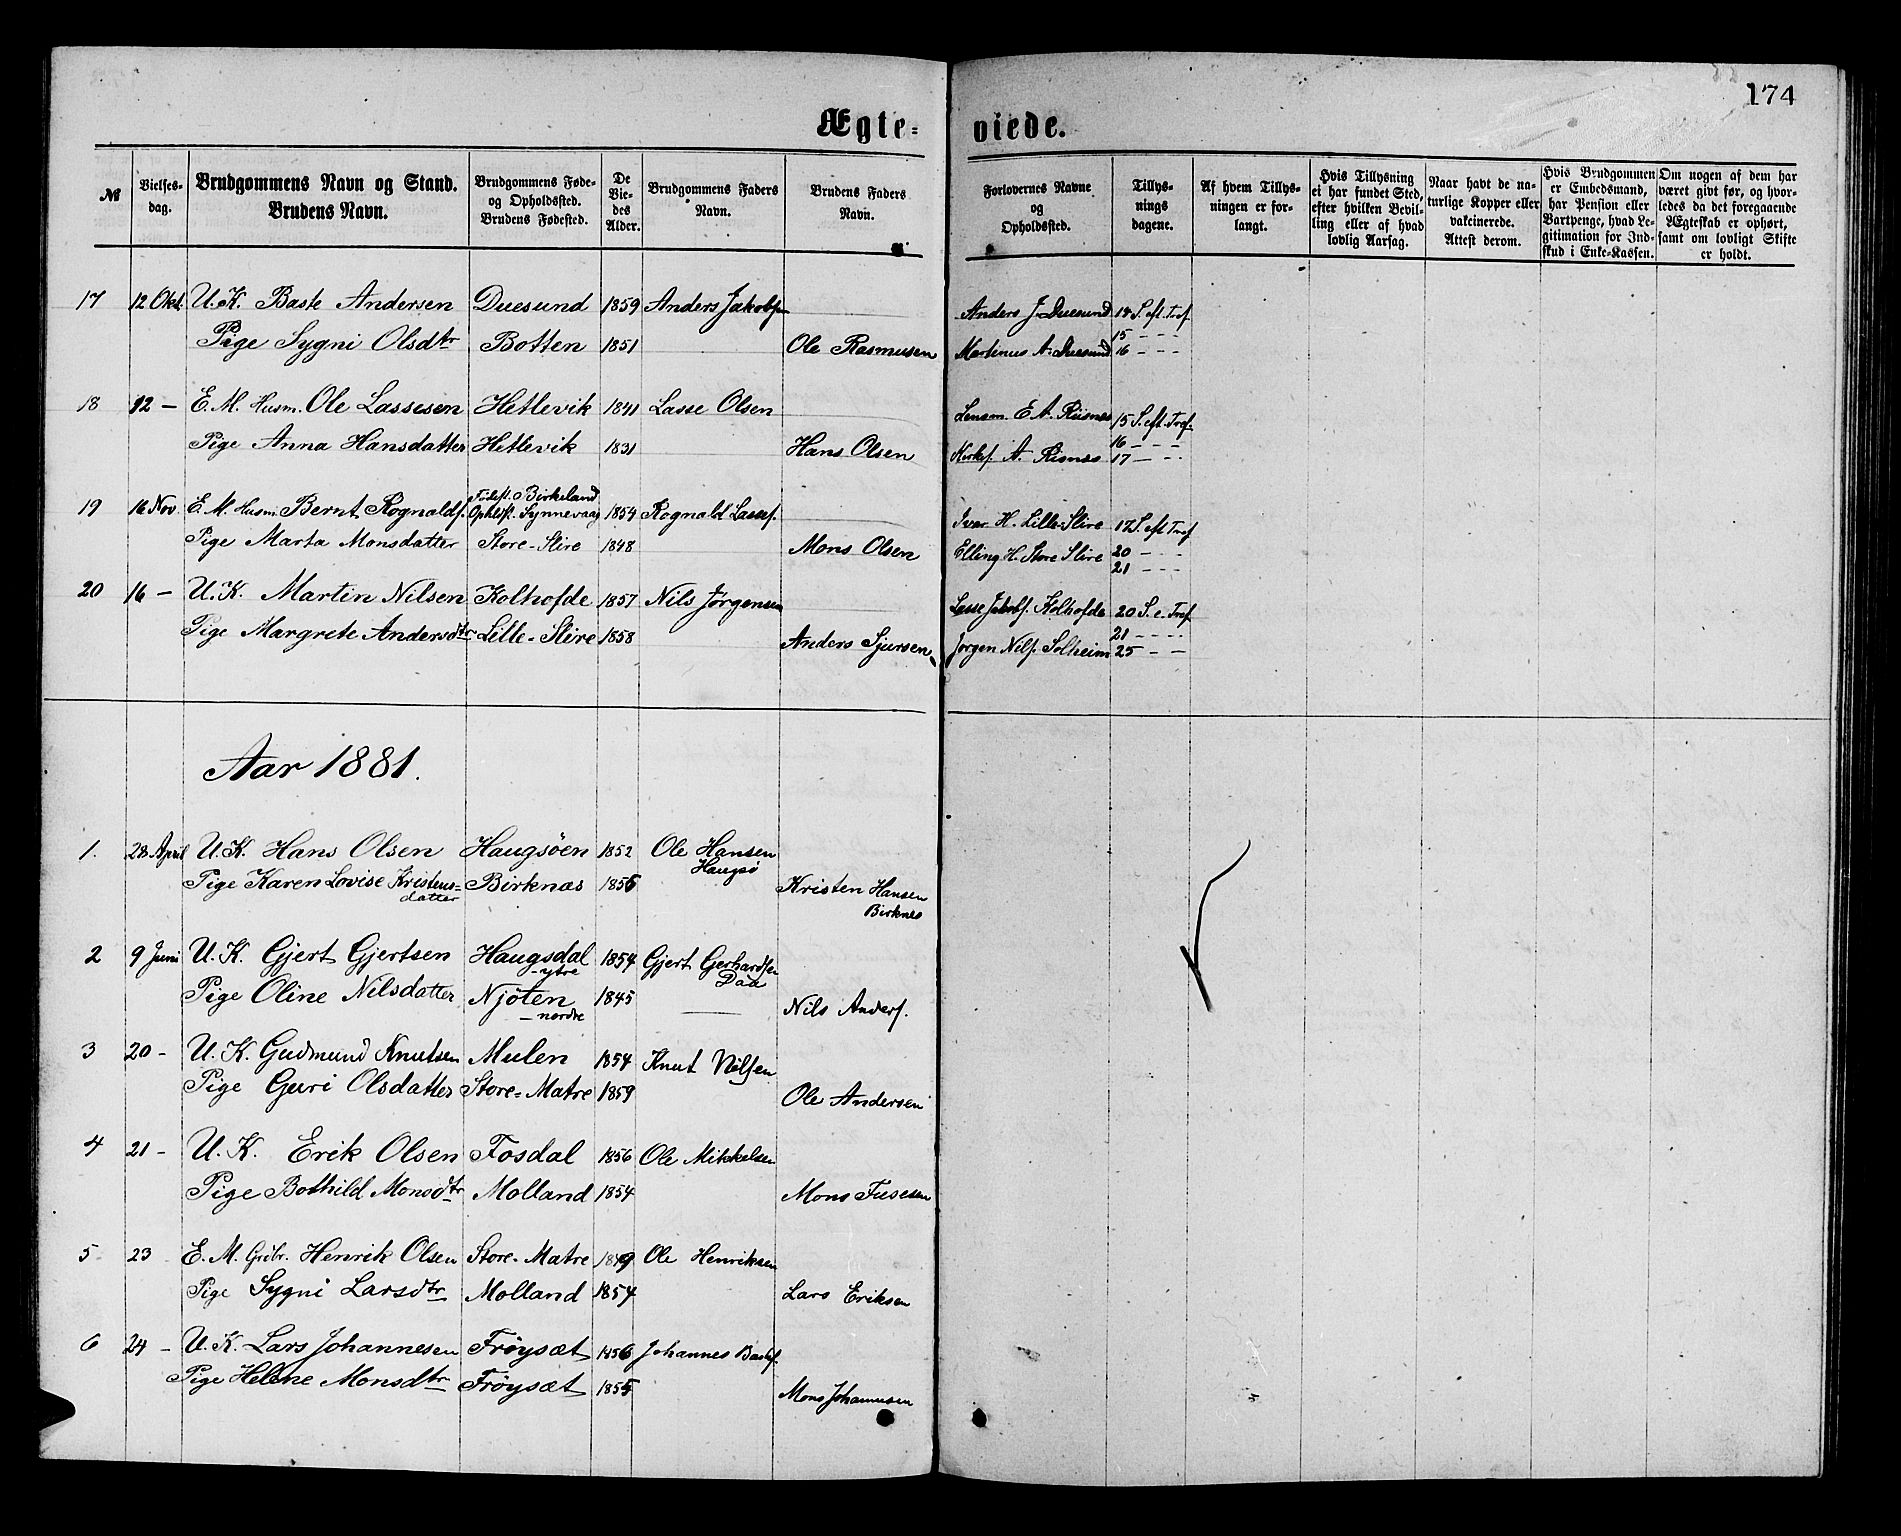 174
Ægte=viede.
№
Vielses-
dag.
Brudgommens Navn og Stand.
Brudens Navn.
Brudgommens Føde-
og Opholdssted.
Brudens Fødested.
De
Vie-
des
Alder.
Brudgommens Faders
Navn.
Brudens Faders
Navn.
Forlovernes Navne
og
Opholdssted.
Tillys-
nings
dagene.
Af hvem Tillys-
ningen er for-
langt.
Hvis Tillysning
ei har fundet Sted,
efter hvilken Bevil-
ling eller af hvad
lovlig Aarsag.
Naar havt de na-
turlige Kopper eller
vakcinerede.
Attest derom.
Hvis Brudgommen
er Embedsmand,
har Pension eller
Vartpenge, hvad Le-
gitimation for Ind-
skud i Enke-Kassen.
Om nogen af dem har
været givt før, og hvor-
ledes da det foregaaende
Ægteskab er ophørt,
samt om lovligt Skifte
er holdt.
17 12 Okt. U. K. Baste Andersen Duesund 1859 Anders Jakobsen Anders J. Duesund 14 S. eft. Tref.
Pige Sygni Olsdtr Botten 1851 Ole Rasmusen Martinus A. Duesund 15 - - -
16 - - -
18 12 — E. M. Husm. Ole Lassesen Hetlevik 1841 Lasse Olsen Lensm. E A. Risnes 15 S. eft. Tref.
Pige Anna Hansdatter Hetlevik 1831 Hans Olsen Kirkes. A. Risnes 16 - - -
17 - - -
19 16 Nov. E. M. Husm. Bernt Rognalds. Fødest. Birkeland
Opholdst. Synnevaag 1854 Rognald Lasses. Ivar H. Lille-Slire 17 S. eft Tref
Pige Marta Monsdatter Store-Slire 1848 Mons Olsen Elling H. Store Slire 20 - - -
21 - - -
20 16 — U. K. Martin Nilsen Kolhofde 1857 Nils Jørgensen Lasse Jakobs. Kolhofde 20 S. e. Tref
Pige Margrete Andersdtr Lille-Slire 1858 Anders Sjursen Jørgen Nils. Solheim 21 - - - -
25 - -
Aar 1881.
1. 28 April U. K. Hans Olsen Haugsøen 1852 Ole Hansen
Haugsø
Pige Karen Lovise Kristens=
datter Birknæs 1855 Kristen Hansen
Birknes
2 9 Juni U. K. Gjert Gjertsen Haugsdal
-ytre 1854 Gjert Gerhardsen
Daa
Pige Oline Nilsdatter Njøten
-nordre 1845 Nils Anders.
3 20 - U. K. Gudmund Knutsen Mulen 1854 Knut Nilsen
Pige Guri Olsdatter Store=Matre 1859 Ole Andersen
4 21 - U. K. Erik Olsen Fosdal 1856 Ole Mikkelsen
Pige Bothild Monsdtr Molland 1854 Mons Fusesen
5 23 E. M. Grdbr. Henrik Olsen Store-Matre Ole Henriksen
Pige Sygni Larsdtr Molland 1854 Lars Eriksen
6 24 - U. K. Lars Johannesen Frøysæt 1856 Johannes Bastes.
Pige Helene Monsdtr Frøysæt 1855 Mons Johannesen